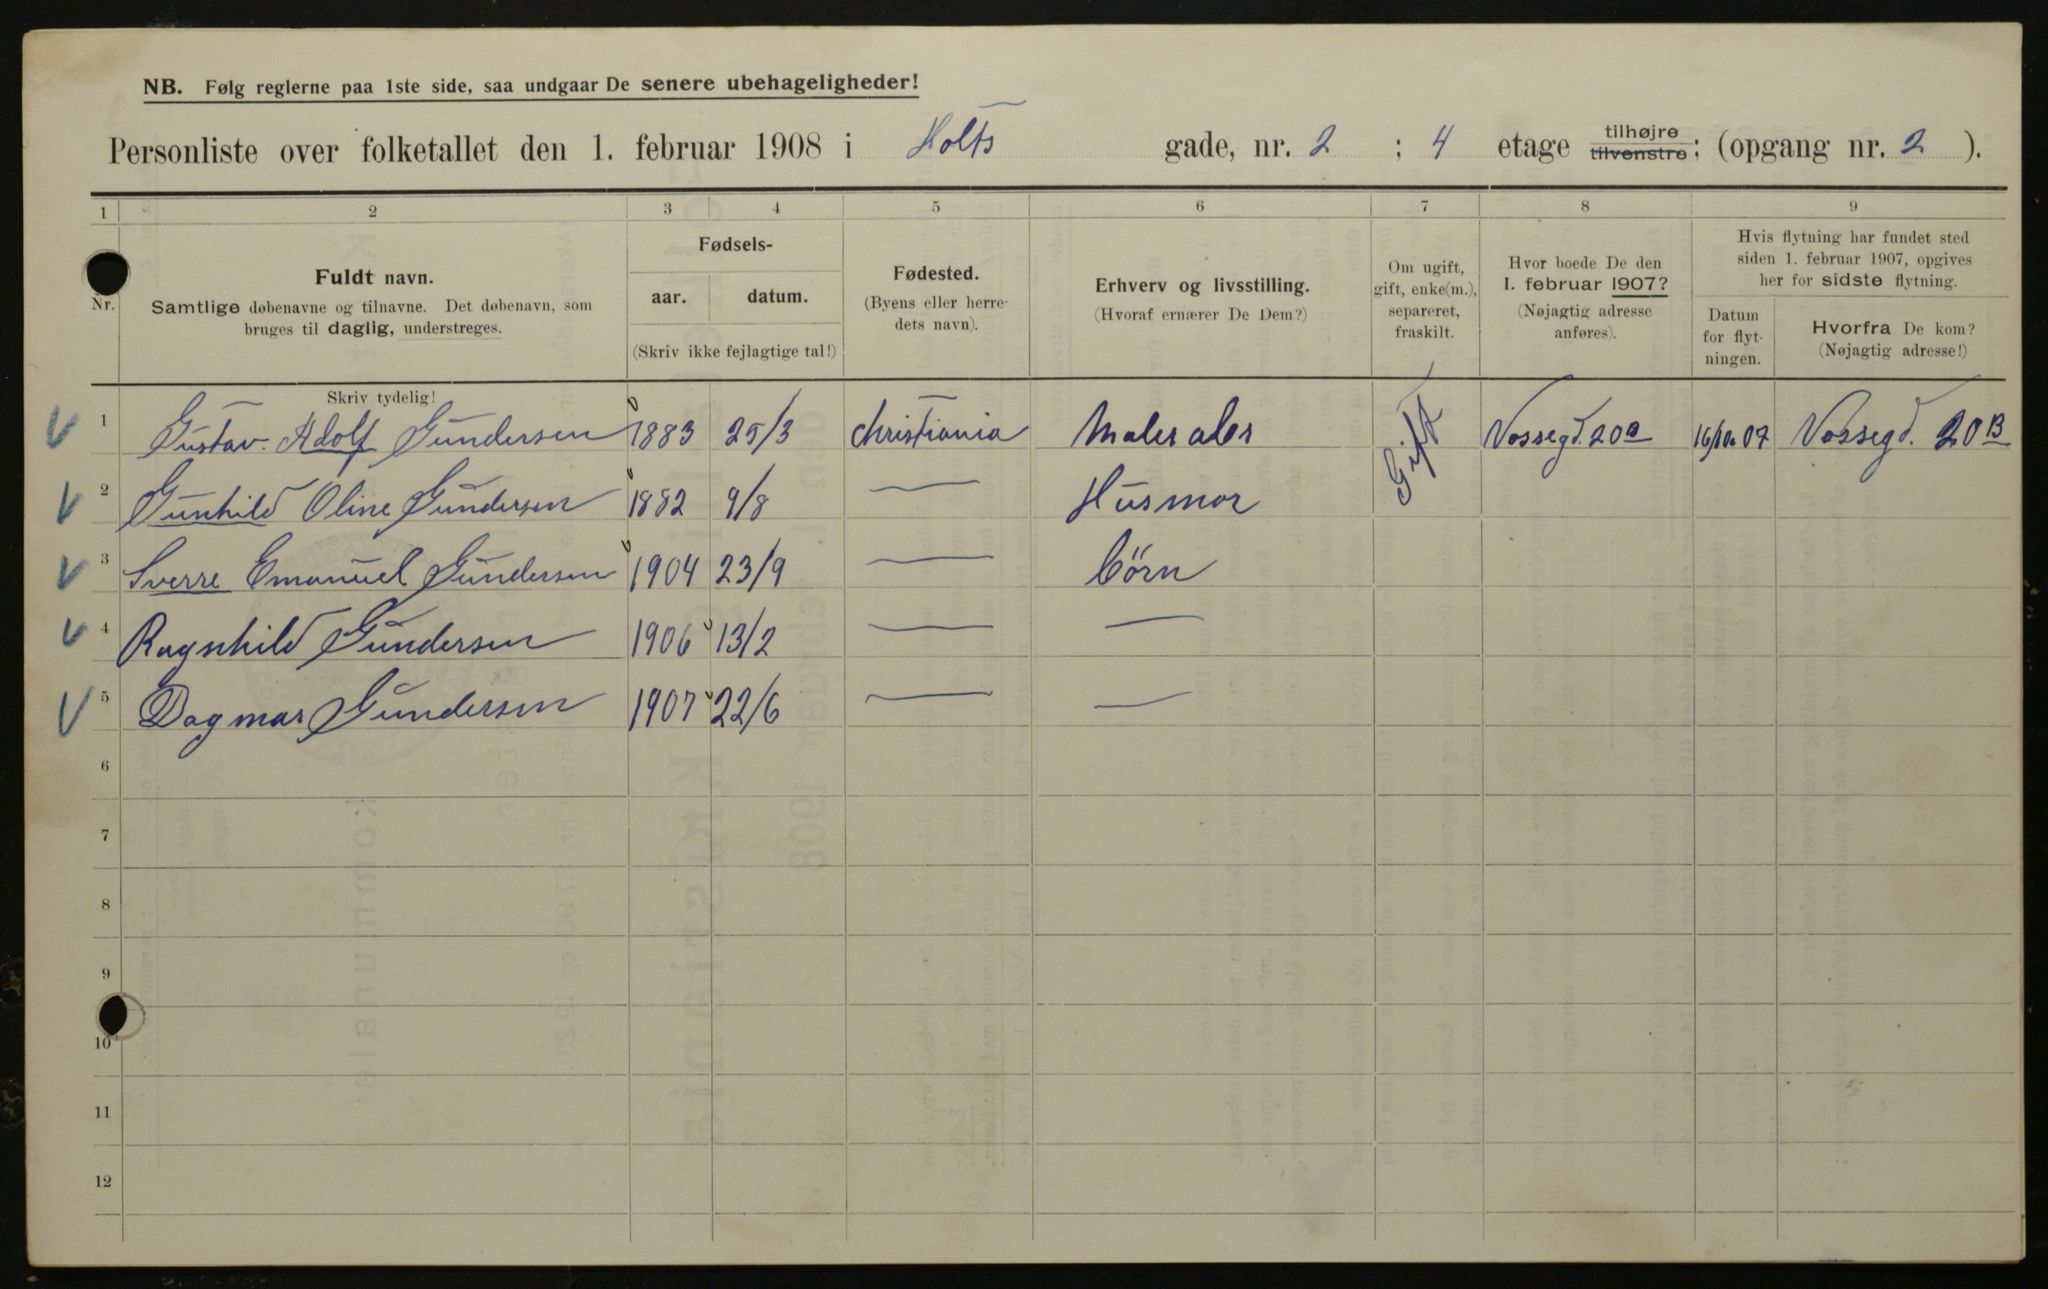 NB. Følg reglerne paa 1ste side, saa undgaar De senere ubehageligheder!
Personliste over folketallet den 1. februar 1908 i Holts gade, nr. 2 ; 4 etage tilhøjre tilvenstre; (opgang nr. 2 ).
1 2 3 4 5 6 7 8 9
Nr.
Fuldt navn.
Samtlige døbenavne og tilnavne. Det døbenavn, som
bruges til daglig, understreges.
Fødsels-
aar. datum.
(Skriv ikke fejlagtige tal!)
Fødested.
(Byens eller herre-
dets navn).
Erhverv og livsstilling.
(Hvoraf ernærer De Dem?)
Om ugift,
gift, enke(m.),
separeret,
fraskilt.
Hvor boede De den
1. februar 1907?
(Nøjagtig adresse
anføres).
Hvis flytning har fundet sted
siden 1. februar 1907, opgives
her for sidste flytning.
Datum
for flyt-
ningen.
Hvorfra De kom?
(Nøjagtig adresse!)
Skriv tydelig!
1 Gustav. Adolf Gundersen 1883 25/3 Christiania Maler Gift Vossegd. 20 B 16/10 07 Vossegd. 20 B
2 Gunhild Oline Gundersen 1882 9/8 — Husmor
3 Sverre Emanuel Gundersen 1904 23/9 — Börn
4 Ragnhild Gundersen 1906 13/2 — —
5 Dagmar Gundersen 1907 22/6 — —
6
7
8
9
10
11
12